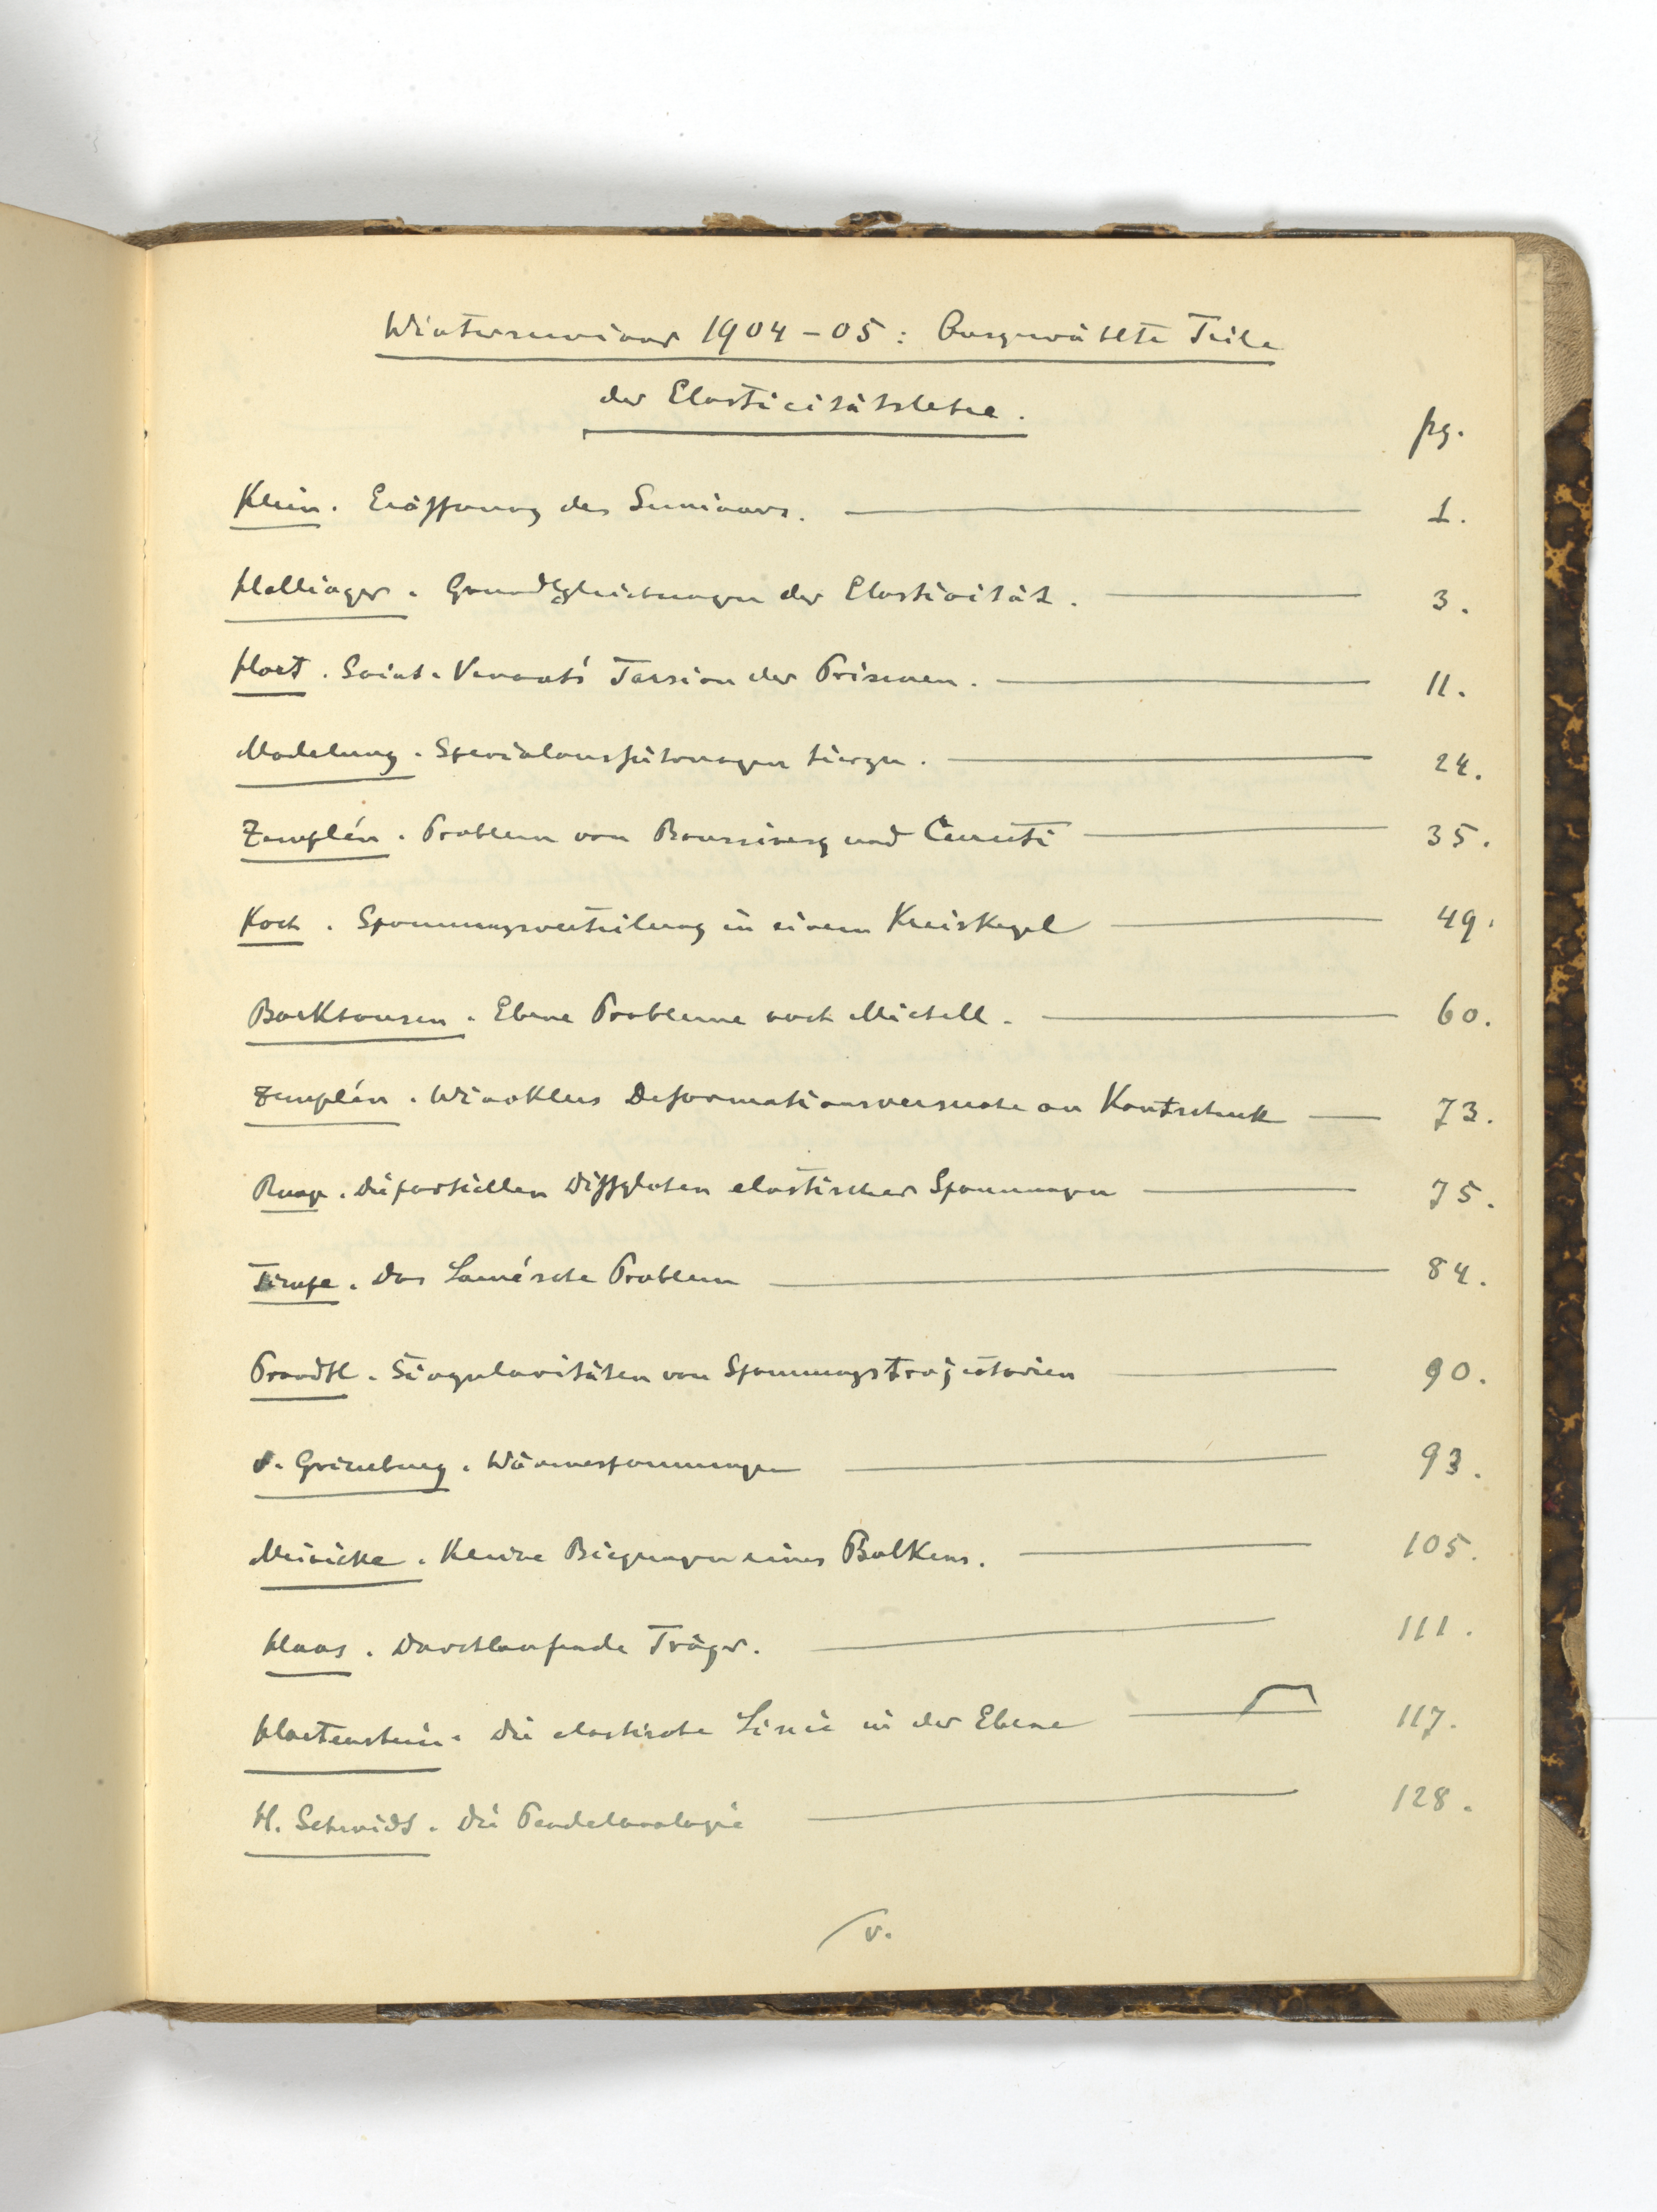 Winterseminar 1904-05: Ausgewählte Teile
der Elasticitätslehre.
pg.
Klein. Eröffnung des Seminars. 1.
Hellinger. Grundgleichungen der Elasticität. 3.
Hort. Saint-Venant's Torsion der Prismen. 11.
Madelung. Specialausführungen hierzu. 24.
Zemplén. Problem von Boussinesq und Cerruti 35.
Koch. Spannungsverteilung in einem Kreiskegel 49.
Backhausen. Ebene Probleme nach Michell. 60.
Zemplén. Winklers Deformationsversuche an Kautschuk 73.
Runge. Die partiellen Diffglchen elastischer Spannungen 75.
Timpe. Das Lamé'sche Problem 84.
Prandtl. Singularitäten von Spannungstrajectorien 90.
Grünberg. Wärmespannungen 93.
Meinicke. Kleine Biegungen eines Balkens. 105.
Haas. Durchlaufende Träger. 111.
Hartenstein. Die elastische Linie in der Ebene 117.
H. Schmidt. Die Pendelanalogie 128.
v.